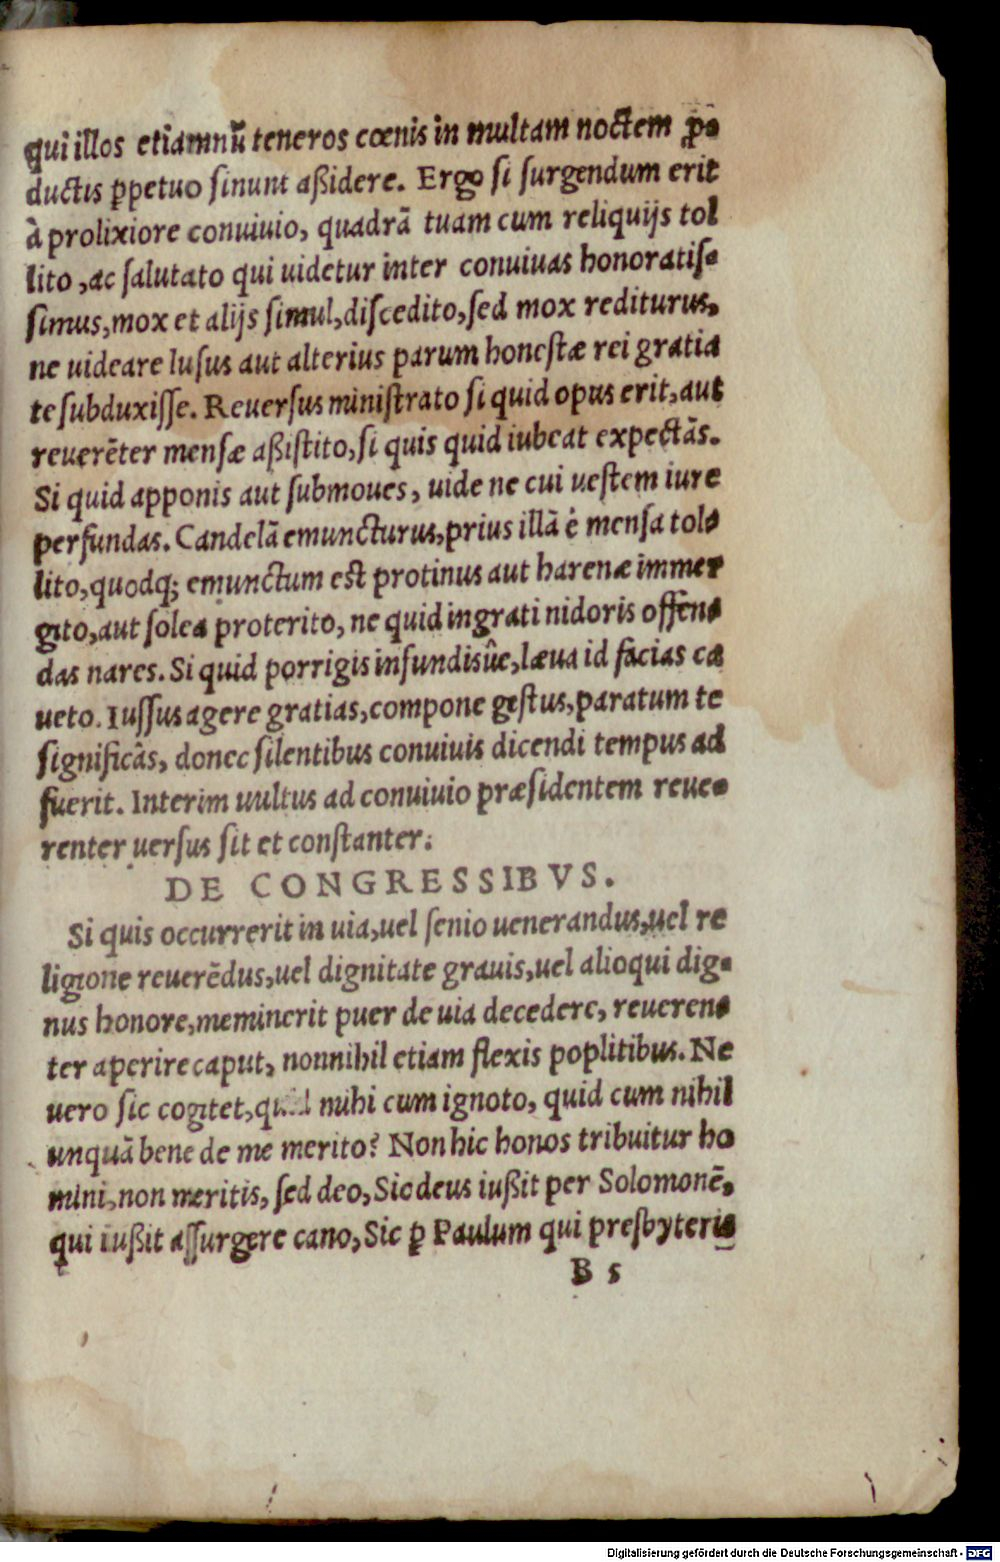 qui illos etiamnū teneros cœnis in multam noctem ꝓ-
ductis ꝑpetuo sinunt aßidere. Ergo si surgendum erit
à prolixiore conuiuio, quadrā tuam cum reliquijs tol
lito, ac salutato qui uidetur inter conuiuas honoratis-
simus, mox et alijs simul, discedito, sed mox rediturus,
ne uideare lusus aut alterius parum honestæ rei gratia
te subduxisse. Reuersus ministrato si quid opus erit, aut
reuerēter mensæ aßistito, si quis quid iubeat expectās.
Si quid apponis aut submoues, uide ne cui uestem iure
perfundas. Candelā emuncturus, prius illā è mensa tol-
lito, quodq; emunctum est protinus aut harenæ immer
gito, aut solea proterito, ne quid ingrati nidoris offen-
das nares. Si quid porrigis infundisûe, læua id facias ca
ueto. Iussus agere gratias, compone gestus, paratum te
significās, donec silentibus conuiuis dicendi tempus ad
fuerit. Interim uultus ad conuiuio præsidentem reue-
renter uersus sit et constanter.
DE CONGRESSIBVS.
Si quis occurrerit in uia, uel senio uenerandus, uel re
ligione reuerēdus, uel dignitate grauis, uel alioqui dig-
nus honore, meminerit puer de uia decedere, reueren-
ter aperire caput, nonnihil etiam flexis poplitibus. Ne
uero sic cogitet, quid mihi cum ignoto, quid cum nihil
unquā bene de me merito? Non hic honos tribuitur ho
mini, non meritis, sed deo, Sic deus iußit per Solomonē,
qui iußit assurgere cano, Sic ꝑ Paulum qui presbyteris
B 5
Digitalisierung gefördert durch die Deutsche Forschungsgemeinschaft - DFG